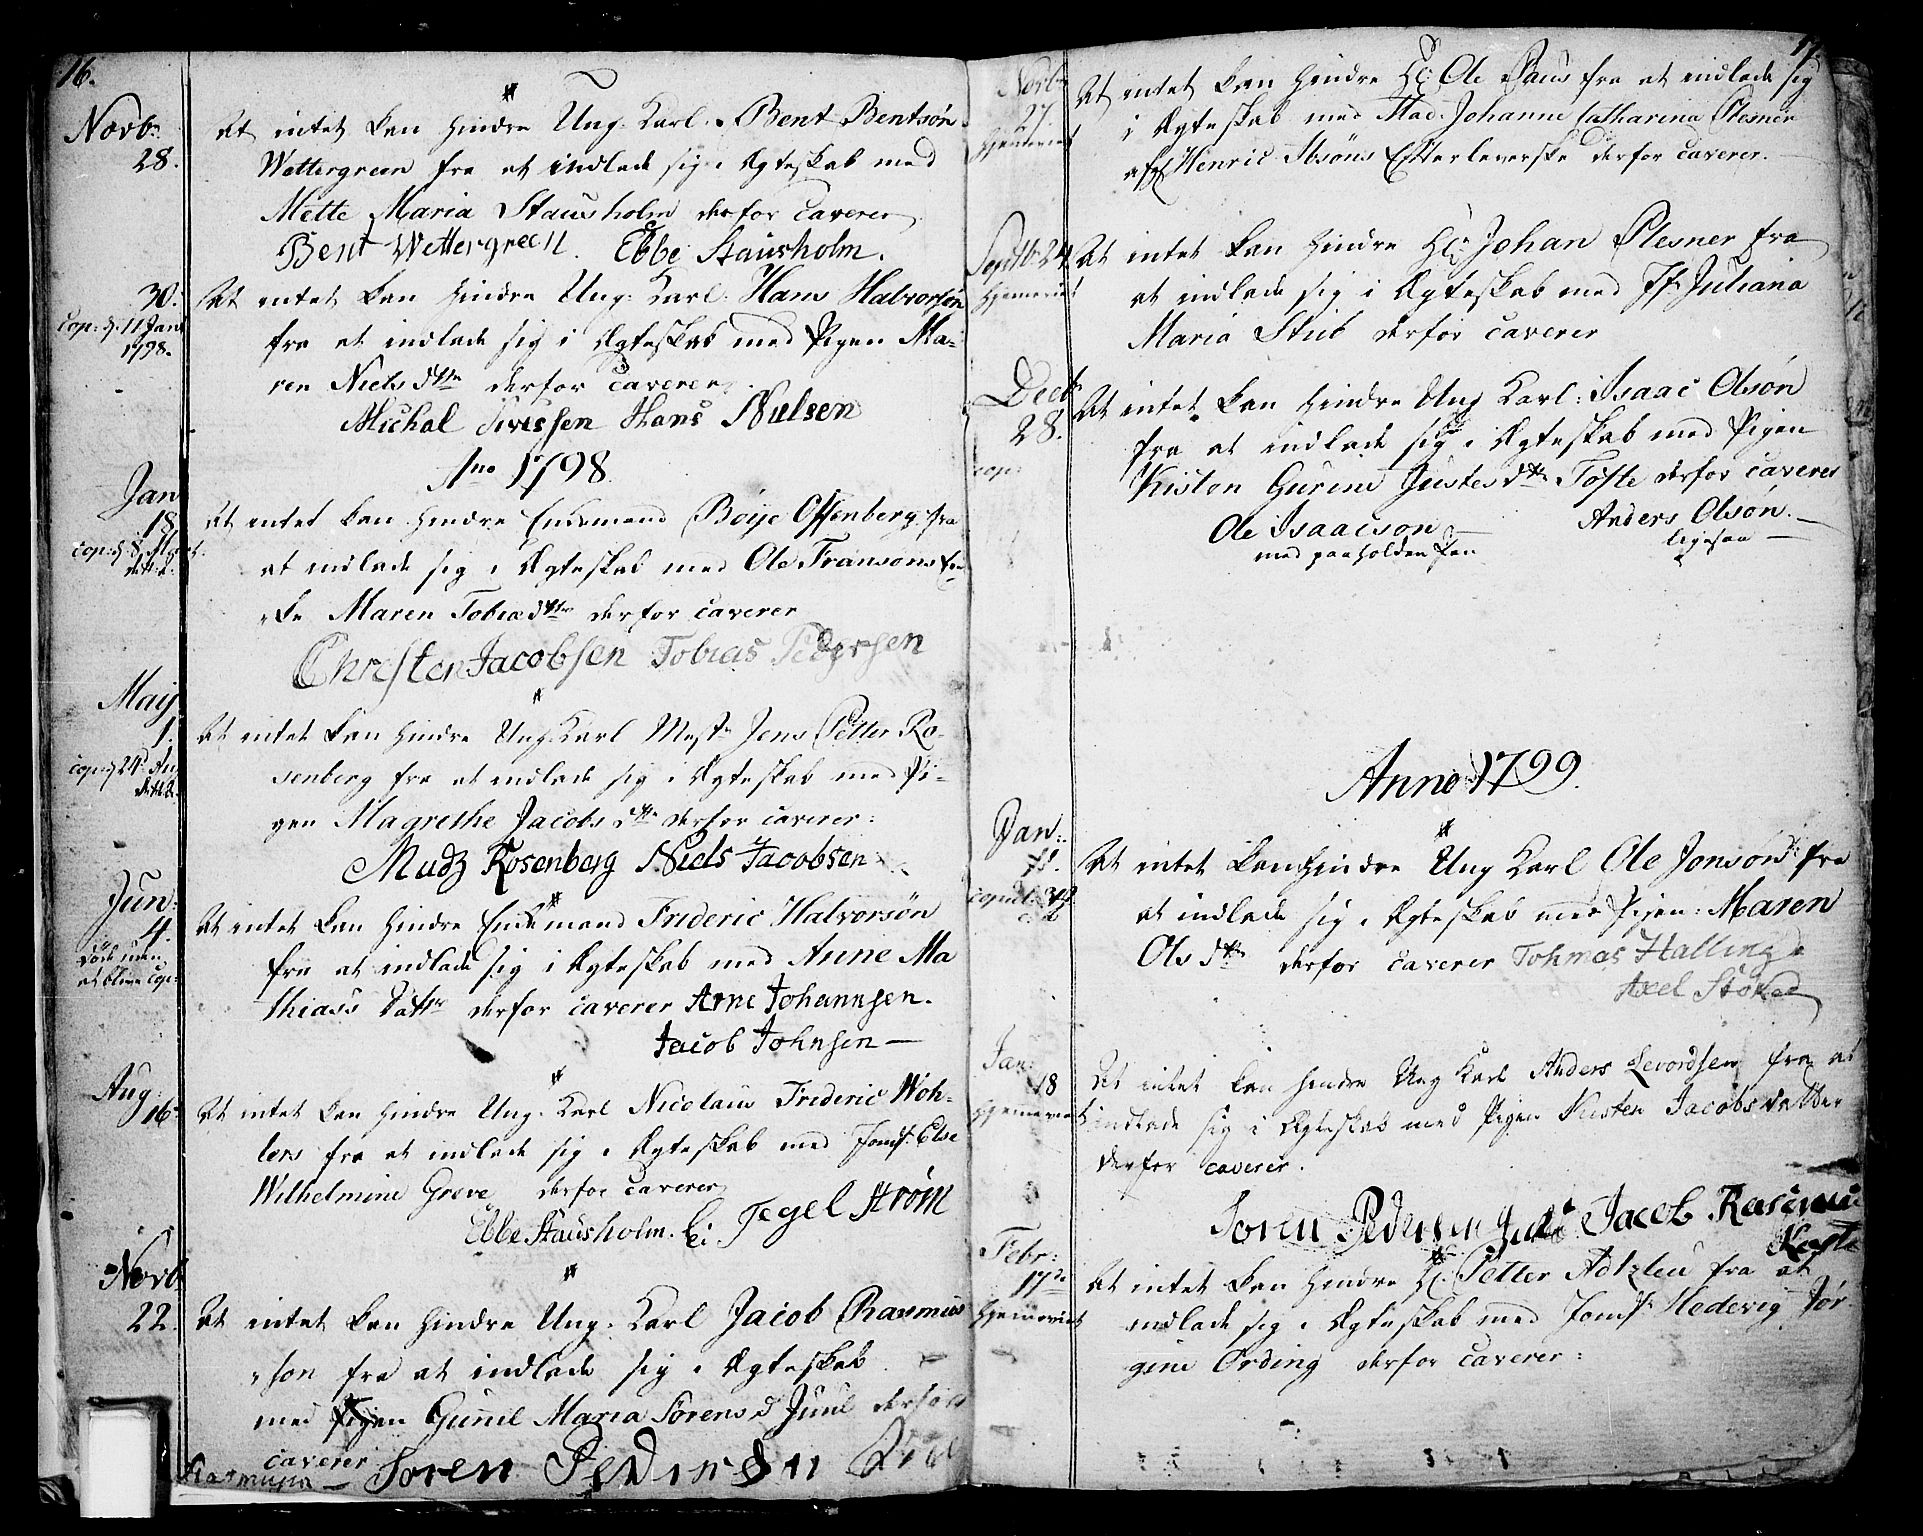 16.
Novb:
28.
At intet kan hindre Ung. Karl. Bent Bentsøn
Wettergreen fra at indlade sig i Ægteskab med
Mette Maria Stausholm derfor caverer
Bent Wettergreen. Ebbe Stausholm.
30.
Cop: d. 11 Jan:
1798.
At intet kan hindre Ung: Karl. Hans Halvorsøn
fra at indlade sig i Ægteskab med Pigen Ma-
ren Niels dttr derfor caverer
Michal Hans Nielsen
Ano 1798.
Jan
18.
At intet kan hindre Enkemand Boije Offenberg fra
at indlade sig i Ægteskab med Ole Fransøns En-
ke Maren Tobiæ dttr derfor caverer
Christen Jacobsen Tobias Pedersen
Maij
1.
At intet kan hindre Ung. Karl Mestr Jens Petter Ro-
senberg fra at indlade sig i Ægteskab med Pi-
gen Magrethe Jacobs dttr derfor caverer:
Madz Rosenberg Niels Jacobsen
Jun:
4.
døde uden
at blive cop:
At intet kan hindre Enkemand Frideric Halvorsøn
fra at indlade sig i Ægteskab med Anne Ma
thiass Dattr derfor caverer Arne Johannsen.
Jacob Johnsen
Aug:
16.
At intet kan hindre Ung. Karl Nicolaus Frideric Woh-
lers fra at indlade sig i Ægteskab med Jomfr. Else
Wilhelmine Greve derfor caverer
Ebbe Stausholm. Ei Tegel Strøm
Novb
22.
At intet kan hindre Ung. Karl Jacob Rasmus
søn fra at indlade sig i Ægteskab
med Pigen Gunil Maria Sørens d. Juul derfor
caverer
Soren Pedersen
17.
Novbr
27
Hjemviet
At intet kan hindre Hr: Ole Paus fra at indlade sig
i Ægteskab med Mad. Johanne Catharina Plesner
afg. Henric Ibsøns Efterleverske derfor caverer.
Septb: 24
Hjemviet
At intet kan hindre Hr: Johan Plesner fra
at indlade sig i Ægteskab med Jfr Juliana
Maria Stub derfor caverer
Decb
28.
cop:
At intet kan hindre Ung Karl: Isaac Olsøn
fra at indlade sig i Ægteskab med Pigen
Kisten Gurine Justes dttr Tofte derfor caverer
Ole Isaacson Anders Olsøn.
med paaholden Pen ligesaa
Anno 1799.
Jan:
11.
At intet kan hindre Ung Karl Ole Jonsøn fra
at indlade sig i Ægteskab med Pigen: Maren
Ols dttr derfor caverer Tohmas Halling
Axel
Jan:
18
Hjemviet
At intet kan hindre Ung Karl Anders Levordsen fra at
indlade sig i Ægteskab med Pigen Kirsten Jacobsdatter
derfor caverer.
Soren Pedersen Juel Jacob Rasmus
Febr:
17de
Hjemviet
At intet kan hindre Hr. Petter Adtzleu fra at
indlade sig i Ægteskab med Jomfr. Hedevig Jør
gine Ording derfor caverer: